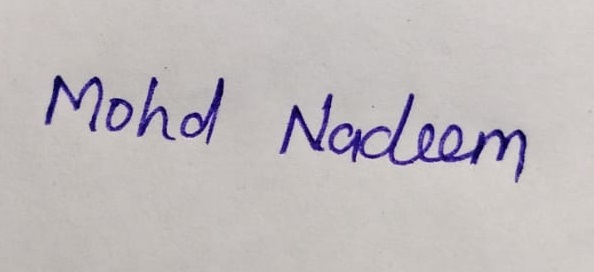 Mohd Nadeem